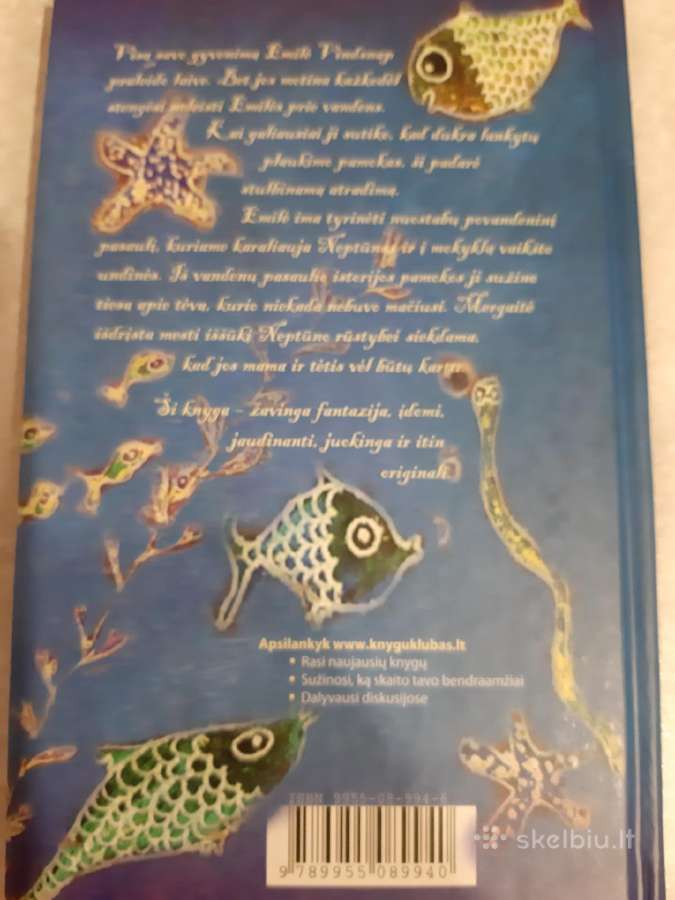 Visą savo gyvenimą Emilė Vindsnap
praleido laive. Bet jos motina kažkodėl
stengėsi neleisti Emilės prie vandens.
Kai galiausiai ji sutiko, kad dukra lankytų
plaukimo pamokas, ši padarė
stulbinamą atradimą.
Emilė ima tyrinėti nuostabų povandeninį
pasaulį, kuriame karaliauja Neptūnas ir į mokyklą vaikšto
undinės. Iš vandenų pasaulio istorijos pamokos ji sužino
tiesą apie tėvą, kurio niekada nebuvo mačiusi. Mergaitė
išdrįsta mesti iššūkį Neptūno rūstybei siekdama,
kad jos mama ir tėtis vėl būtų kartu.
Ši knyga – žavinga fantazija, įdomi,
jaudinanti, juokinga ir itin
originali
Apsilankyk www.knyguklubas.lt
• Rasi naujausių knygų
• Sužinosi, ką skaito tavo bendraamžiai
• Dalyvausi diskusijose
ISBN 9955-08-994-6
9 789955 089940
skelbiu.lt